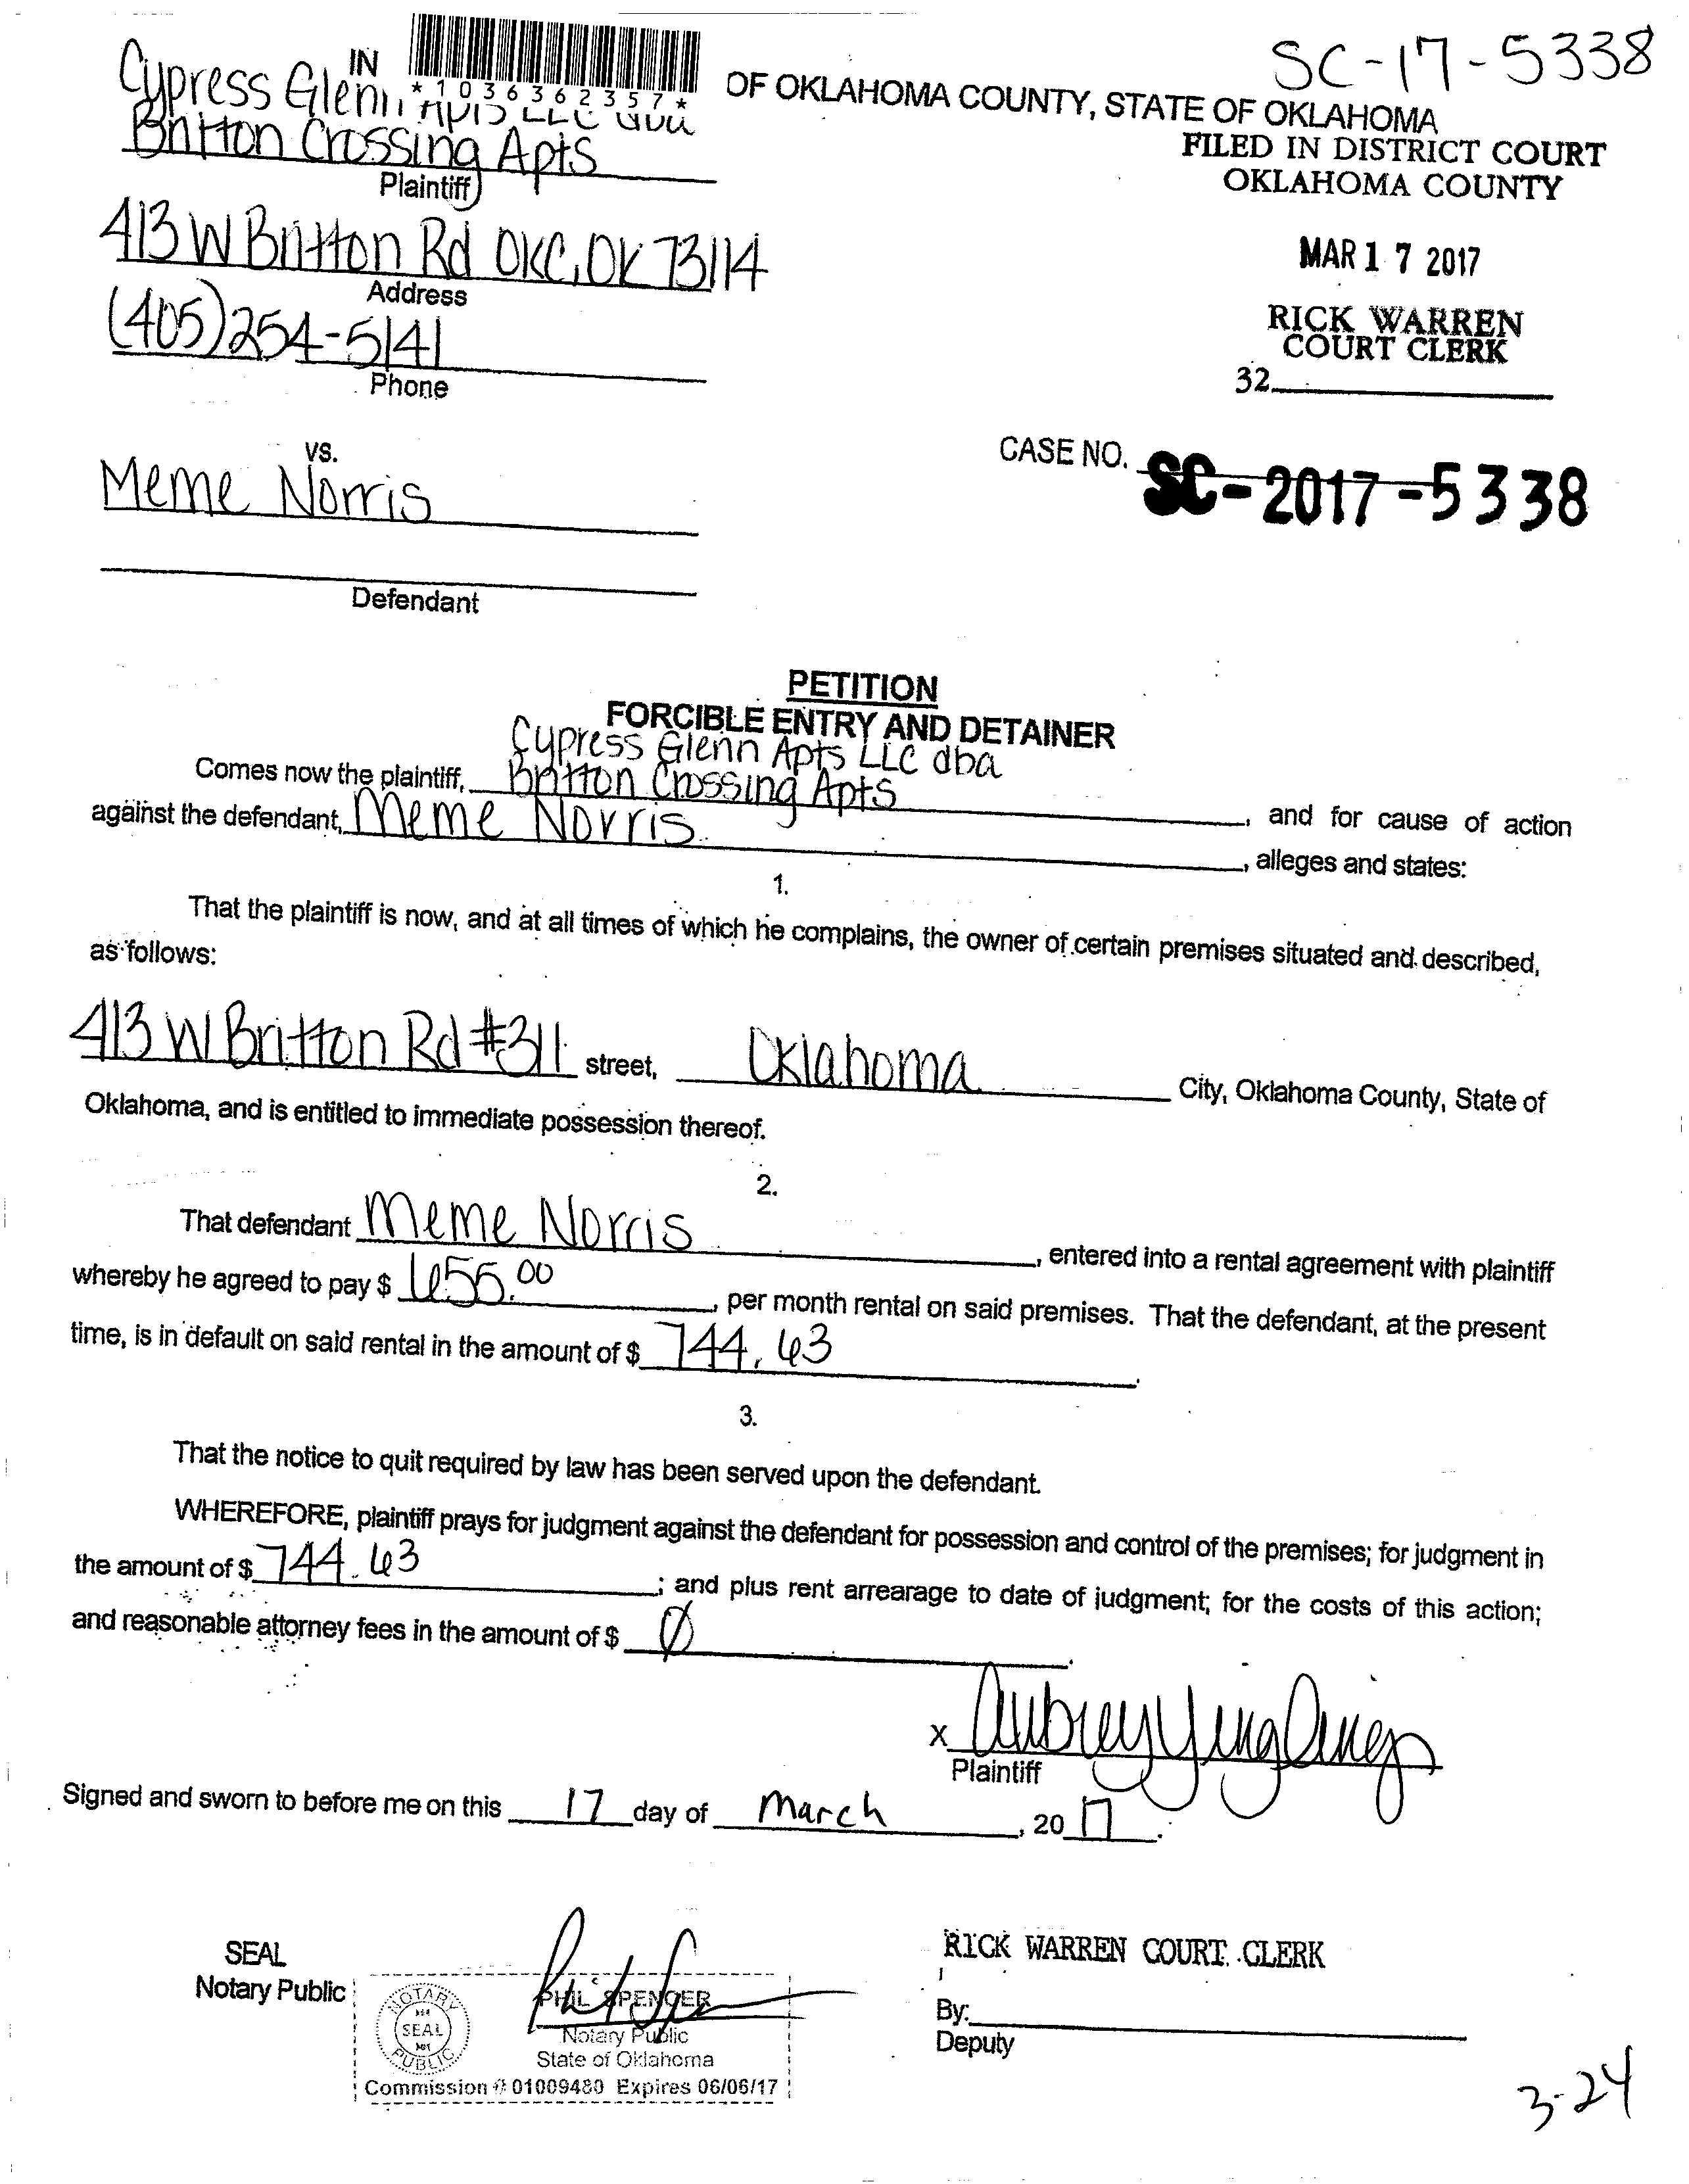 SC-17-5338
IN
*1036362357*
OF OKLAHOMA COUNTY, STATE OF OKLAHOMA
Cypress Glenn Apts LLC dba
Britton Crossing Apts
Plaintiff
FILED IN DISTRICT COURT
OKLAHOMA COUNTY
413 W Britton Rd OKC, OK 73114
Address
MAR 17 2017
(405)254-5141
Phone
RICK WARREN
COURT CLERK
32
vs.
CASE NO. SC-2017-5338
Meme Norris
Defendant
PETITION
FORCIBLE ENTRY AND DETAINER
Cypress Glenn Apts LLC dba
Comes now the plaintiff, Britton Crossing Apts, and for cause of action
against the defendant, Meme Norris, alleges and states:
1.
That the plaintiff is now, and at all times of which he complains, the owner of certain premises situated and described,
as follows:
413 W Britton Rd #311 street, Oklahoma City, Oklahoma County, State of
Oklahoma, and is entitled to immediate possession thereof.
2.
That defendant Meme Norris, entered into a rental agreement with plaintiff
whereby he agreed to pay $ 655.00, per month rental on said premises. That the defendant, at the present
time, is in default on said rental in the amount of $ 744.63.
3.
That the notice to quit required by law has been served upon the defendant.
WHEREFORE, plaintiff prays for judgment against the defendant for possession and control of the premises; for judgment in
the amount of $ 744.63; and plus rent arrearage to date of judgment; for the costs of this action;
and reasonable attorney fees in the amount of $ Ø.
X Aubrey
Plaintiff
Signed and sworn to before me on this 17 day of March, 20 17.
SEAL
Notary Public
NOTARY PUBLIC
SEAL
PHIL SPENCER
Notary Public
State of Oklahoma
Commission # 01009480 Expires 06/06/17
RICK WARREN COURT CLERK
By:
Deputy
3-24